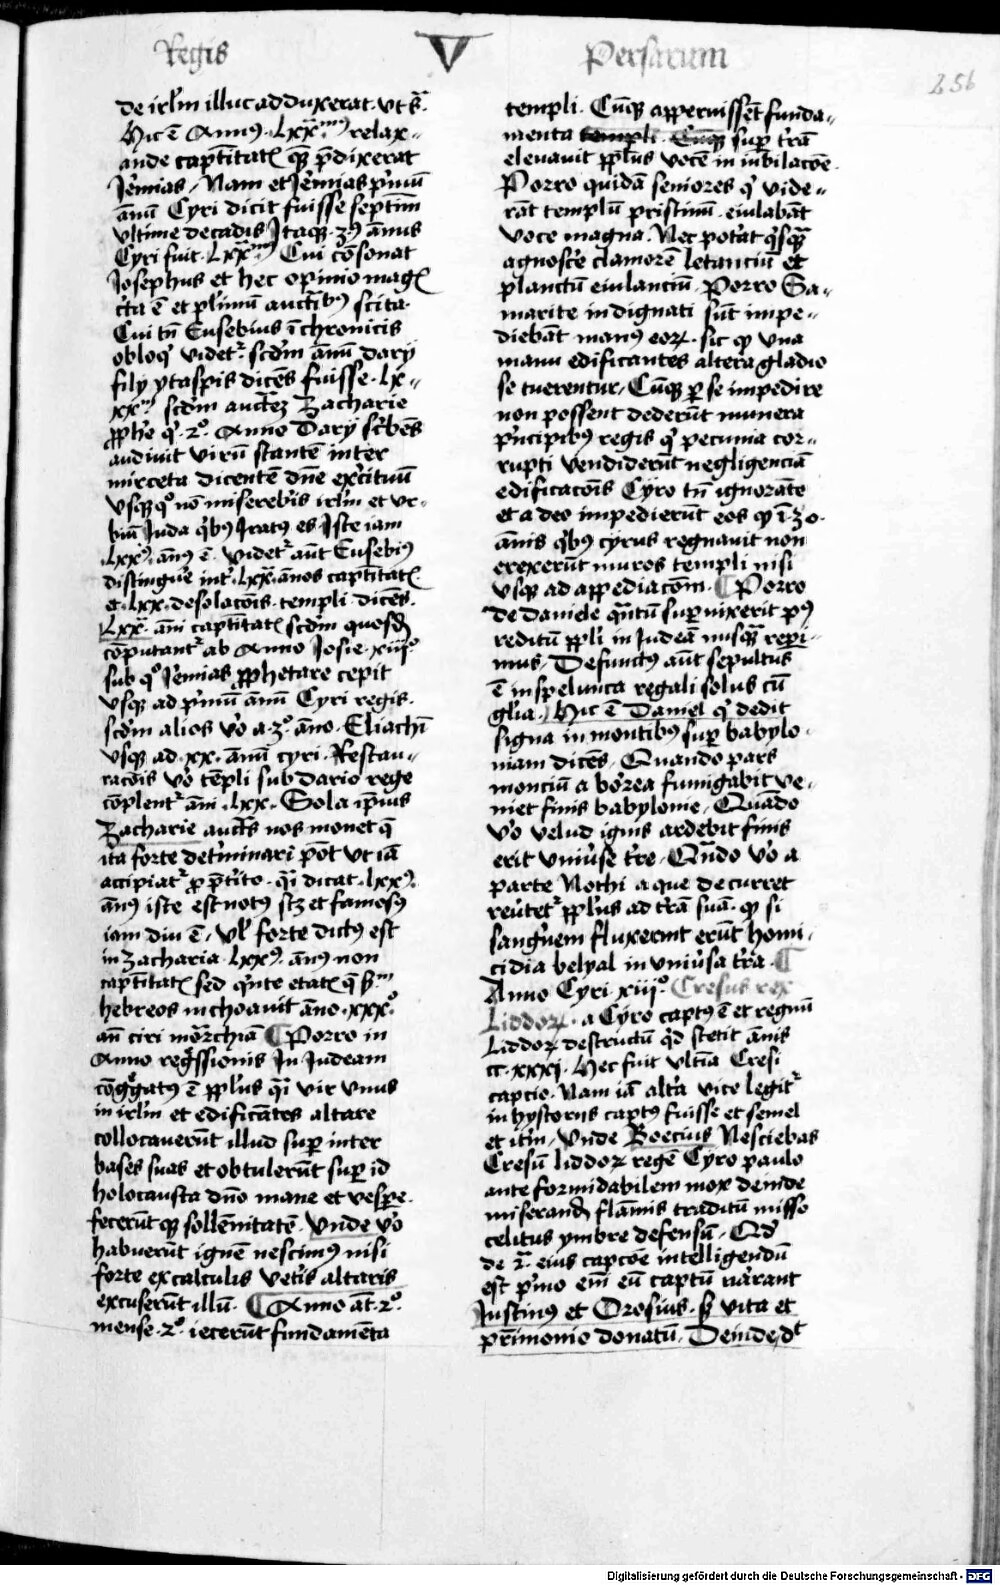 Regis V Persarum
256
de irl'm illuc adduxerat. vt s.
Hic ē Annus. Lxx.mus relax-
ande captītatis quē p̄dixerat
Jēmias, Nam et Jēmias p'mū
ānū Cyri dicit fuisse septim
vltime decadis Itaq. 3us ānnus
Cyri fuit. Lxx.mus Cui cōsonat
Josephus et hec opinio magis
c'ta ē et pl'imū auct'ib9 scita.
Cui tn̄ Eusebius ī chronicis
obloq' videt'. scd'm ānū dary
fily ytaspis dicēs fuisse. Lx-
xx.m scd'm auct'ez Zacharie
pph'e q'. 2o. Anno Dary sc'bēs
audiuit virū stantē inter
mirceta dicentē dn̄e exc'ituū
vsq̄quo nō miserebis irl'm et vr-
biū Juda q'b9 Irat9 es Iste iam
Lxx9. ān9 ē. videt' aūt Eusebi9
distingue' int'. Lxx. ānos captītatis
et. Lxx. desolacōis. templi. dicēs.
Lxx. āni captītatis scd'm quosdā
cōputant' ab Anno Josie. xiijo
sub quo Jēmias pphetare cepit
vsq̄ ad p'mū ānū Cyri regis.
scd'm alios vo a. 3o. āno. Eliachī
vsq̄ ad. xx. ānū cyri. Restau-
racōis vo tēpli sub dario rege
cōplent' āni. Lxx. Sola ip̄ius
Zacharie auct's nos monet q̄
ita forte det'minari pōt vt iā
accipiat' p p̄t'ito. q̄i dicat. Lxx9.
ān9 iste est not9 s3 et famos9
iam diu ē, vl' forte dict9 est
in zacharia. Lxx9. ān9 non
captītatis sed q'nte etatis q̄ s'm
hebreos inchoauit āno. xxxo.
an̄ ciri mōrchiā Porro in
Anno reg'ssionis In Judeam
cōg'gat9 ē ppl'us q̄i vir vnus
in irl'm et edificātes altare
collocauerūt illud sup̄ inter
bases suas et obtulerūt sup̄ id
holocausta dn̄o mane et vesp̄e.
fecerūt q̄ sollēnitatē. vnde vo
habuerūt ignē nescim9 nisi
forte ex calculis vet'is altaris
excuserūt illū. Anno āt. 2o.
mense. 2o. iecerūt fundamēta
templi. Cūq̄ apperuissēt funda-
menta templi. Cūq̄ sup̄ t'rā
eleuauit ppl'us vocē in iubilacōe.
Porro quidā seniores q' vide-
rāt templū pristinū. eiulabāt
voce magna. Nec pot'at q'sq̄
agnosc'e clamorē letanciū et
planctū eiulanciū. Porro Sa-
marite indignati sūt impe-
diebāt man9 eor. sic q̄ vna
manu edificantes altera gladio
se tuerentur, Cūq̄ p se impedire
non possent dederūt munera
p'ncipib9 regis q' pecunia cor-
rupti vendiderūt negligenciā
edificacōis Cyro tn̄ ignorāte
et a deo impedierūt eos q̄ ī. 30.
ānis q'b9 cyrus regnauit non
erexerūt muros templi nisi
vsq̄ ad appediacōm. Porro
de daniele q̄ntū sup̄uixerit p9
reditū ppli in Judeā nusq̄ repi-
mus, Defunct9 aūt sepultus
ē in spelunca regali solus cū
gl'ia. Hic ē Daniel q' dedit
signa in montib9 sup̄ babylo-
niam dicēs, Quando pars
monciū a borea fumigabit ve-
niet finis babylonie, Quādo
vo velud ignis ardebit finis
erit vniu'se t're, Qn̄do vo a
parte Nothi aque decurret
reu'tet' ppl'us ad t'rā suā. q̄ si
sang'nem fluxerint erūt homi-
cidia belyal in vniu'sa t'ra.
Anno Cyri xiijo. Cresus rex
Liddor. a Cyro capt9 ē et regnū
Liddor destructū q'd stetit ānis
cc. xxxj. Hec fuit vltīa Cresi
captio. Nam iā alt'a vice legit'
in hystoriis capt9 fuisse et semel
et it'm, vnde Boecius Nesciebas
Cresū liddor regē Cyro paulo
ante formidabilem mox deinde
miserandū flāmis traditū misso
celitus ymbre defensū. Qd'
de 2a. eius capcōe intelligendū
est p'mo em̄ eū captū nar̄ant
Justin9 et Orosius. s3 vita et
pr̄imonio donatū, Deinde, dt
Digitalisierung gefördert durch die Deutsche Forschungsgemeinschaft - DFG